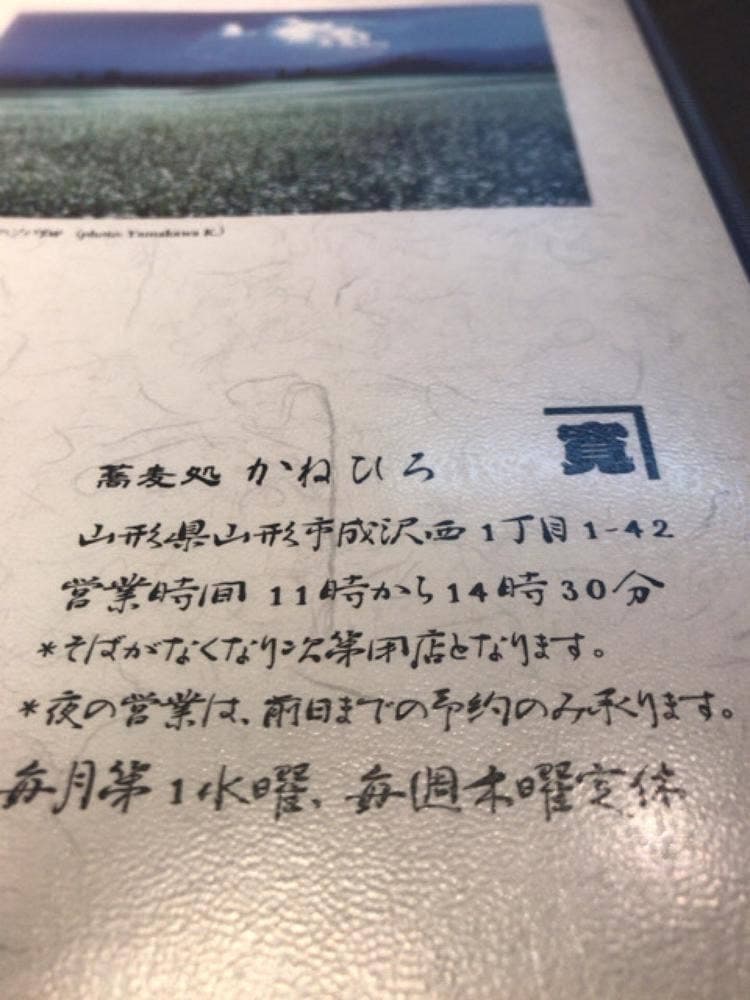 (photo Yamakawa K.)
寛
蕎麦処 かねひろ
山形県山形市成沢西1丁目1-42
営業時間 11時から14時30分
*そばがなくなり次第閉店となります。
*夜の営業は、前日までの予約のみ承ります。
毎月第1水曜、毎週木曜定休